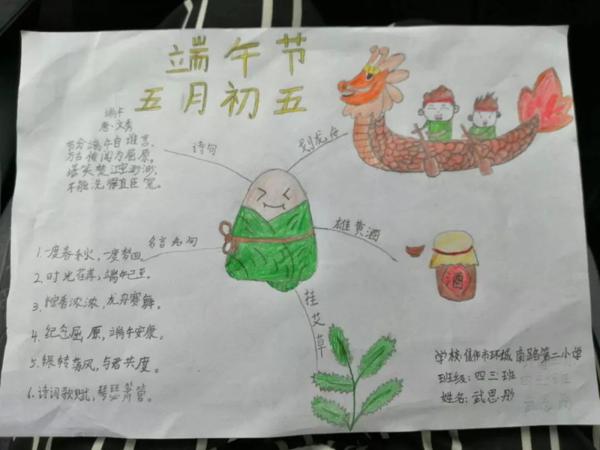 端午节
五月初五
端午
唐·文秀
节分端午自谁言,
万古传闻为屈原,
堪笑楚江空渺渺,
不能洗得直臣冤。
诗句
划龙舟
名言名句
雄黄酒
酒
挂艾草
1.一度春秋,一度梦回。
2.时光荏苒,端午已至。
3.粽香浓浓,龙舟赛舞。
4.纪念屈原,端午安康。
5.辗转落风,与君共度。
6.诗词歌赋,琴瑟箫管。
学校:焦作市环城南路第二小学
班级:四三班
姓名:武思彤